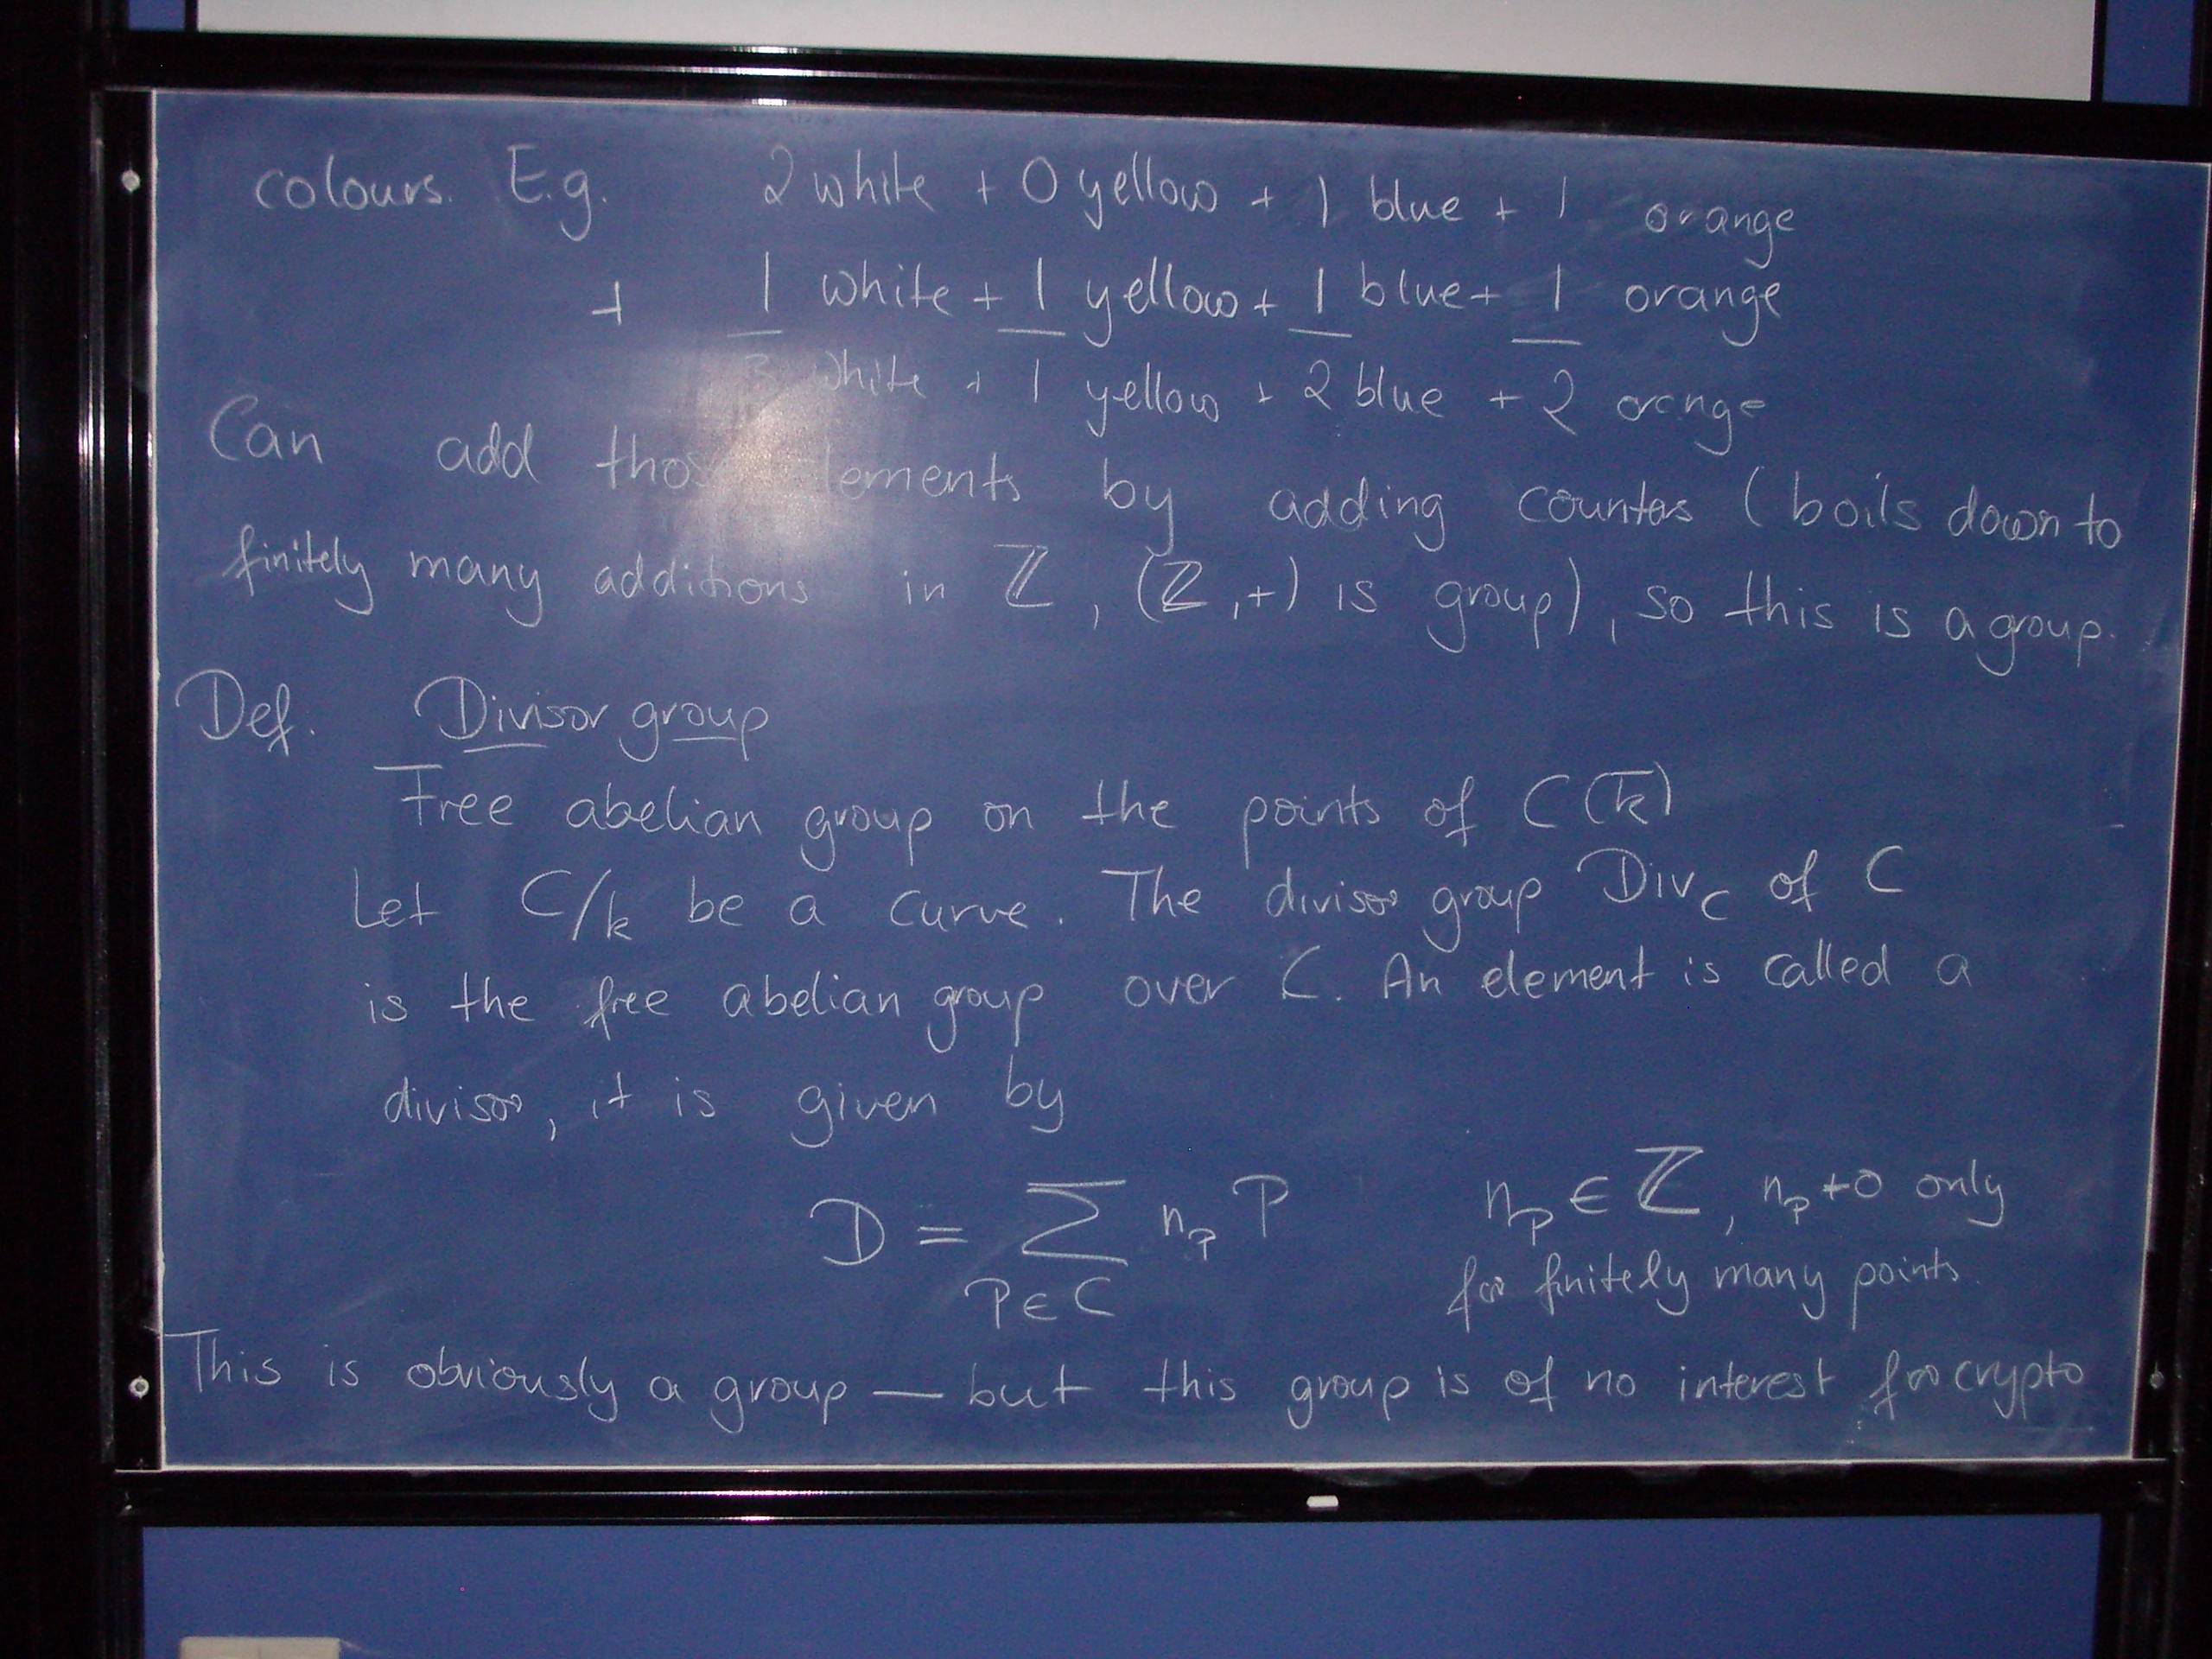 colours. E.g. 2 white + 0 yellow + 1 blue + 1 orange
+ 1 white + 1 yellow + 1 blue + 1 orange
3 white + 1 yellow + 2 blue + 2 orange
Can add those elements by adding counters (boils down to
finitely many additions in ℤ, (ℤ,+) is group), so this is a group.
Def. Divisor group
Free abelian group on the points of C(k̄)
Let C/k be a curve. The divisor group Div_C of C
is the free abelian group over C. An element is called a
divisor, it is given by
D = ∑_{P∈C} n_P P n_P ∈ ℤ, n_P ≠ 0 only
for finitely many points.
This is obviously a group — but this group is of no interest for crypto